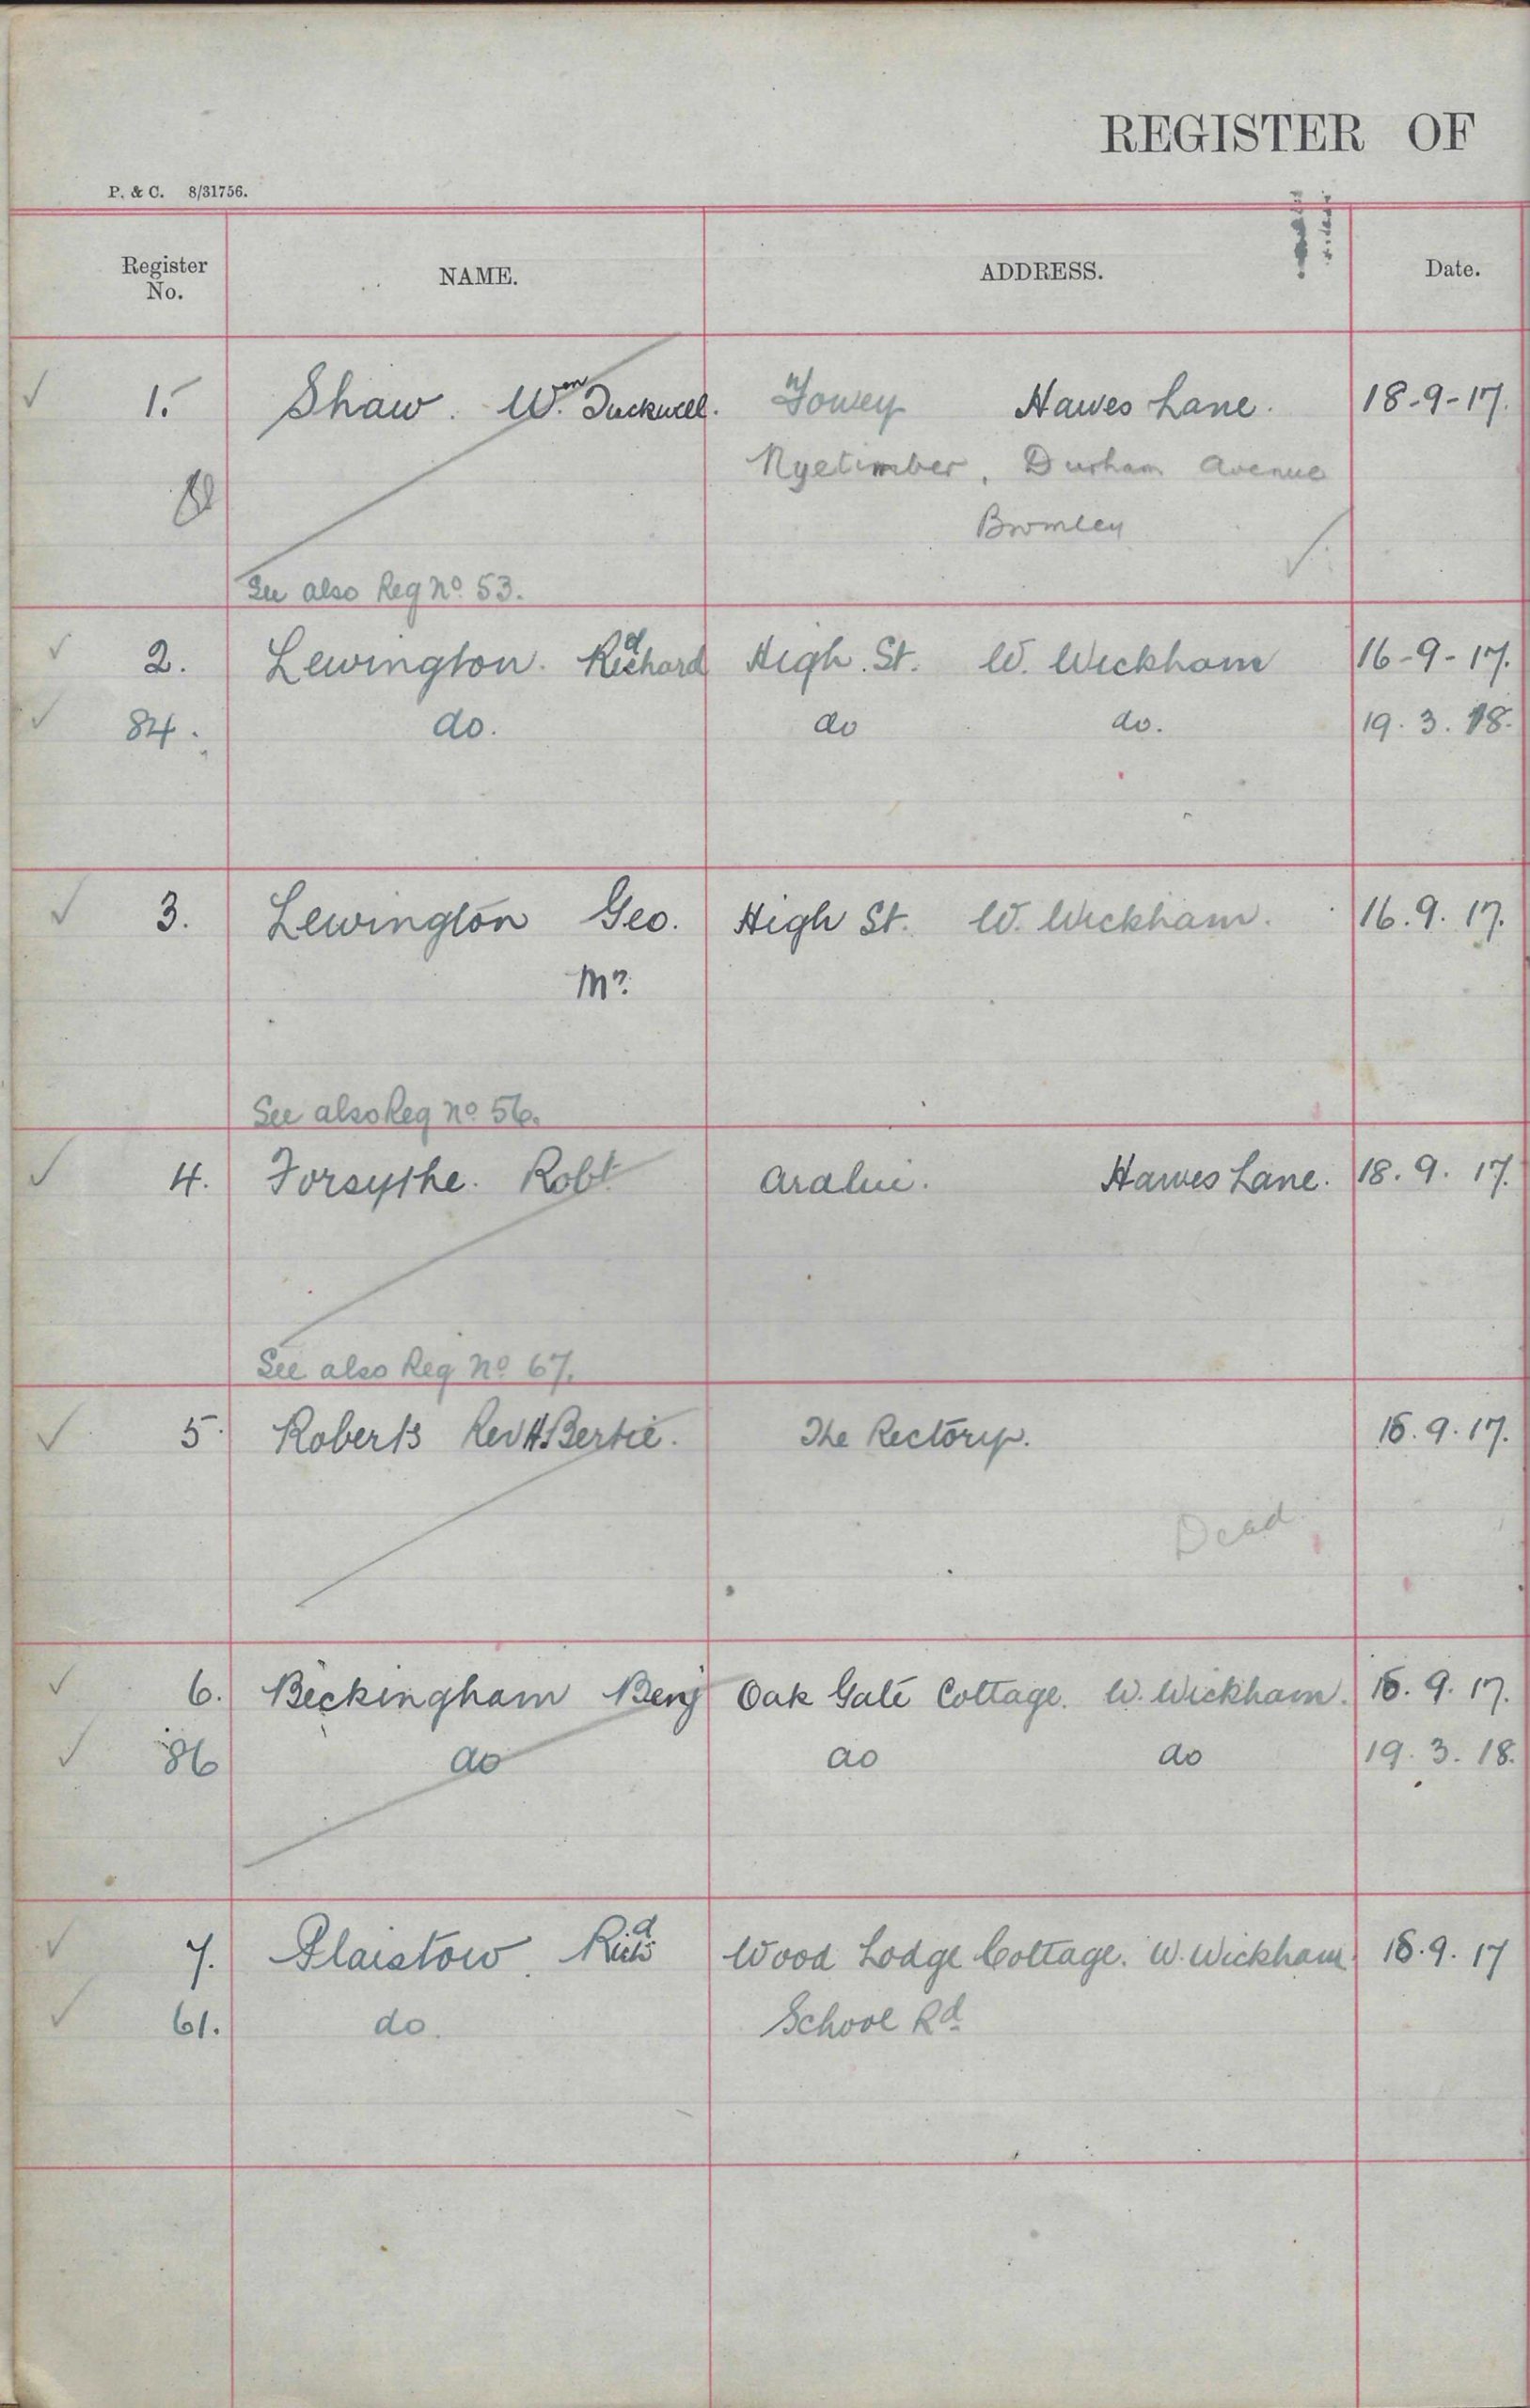 REGISTER OF
P. & C. 8/31756.
Register No. NAME. ADDRESS. Date.
1. Shaw. Wm. Duckwell. Fowey Hawes Lane. 18-9-17.
Nyetimber, Durham Avenue
Bromley
See also Reg No. 53.
2. Lewington. Richard High. St. W. Wickham 16-9-17.
84. do. do do. 19. 3. 18.
3. Lewington Geo. High St. W. Wickham. 16. 9. 17.
Mr.
See also Reg No 56.
4. Forsythe. Robt Aralui. Hawes Lane. 18. 9. 17.
See also Reg No 67.
5. Roberts Rev H. Bertie. The Rectory. 9. 17.
Dead
6. Beckingham Benj Oak Gate Cottage. W. Wickham. 9. 17.
86 do do do 19. 3. 18.
7. Plaistow. Oak Wood Lodge Cottage. W. Wickham 9. 17
61. do. School Rd